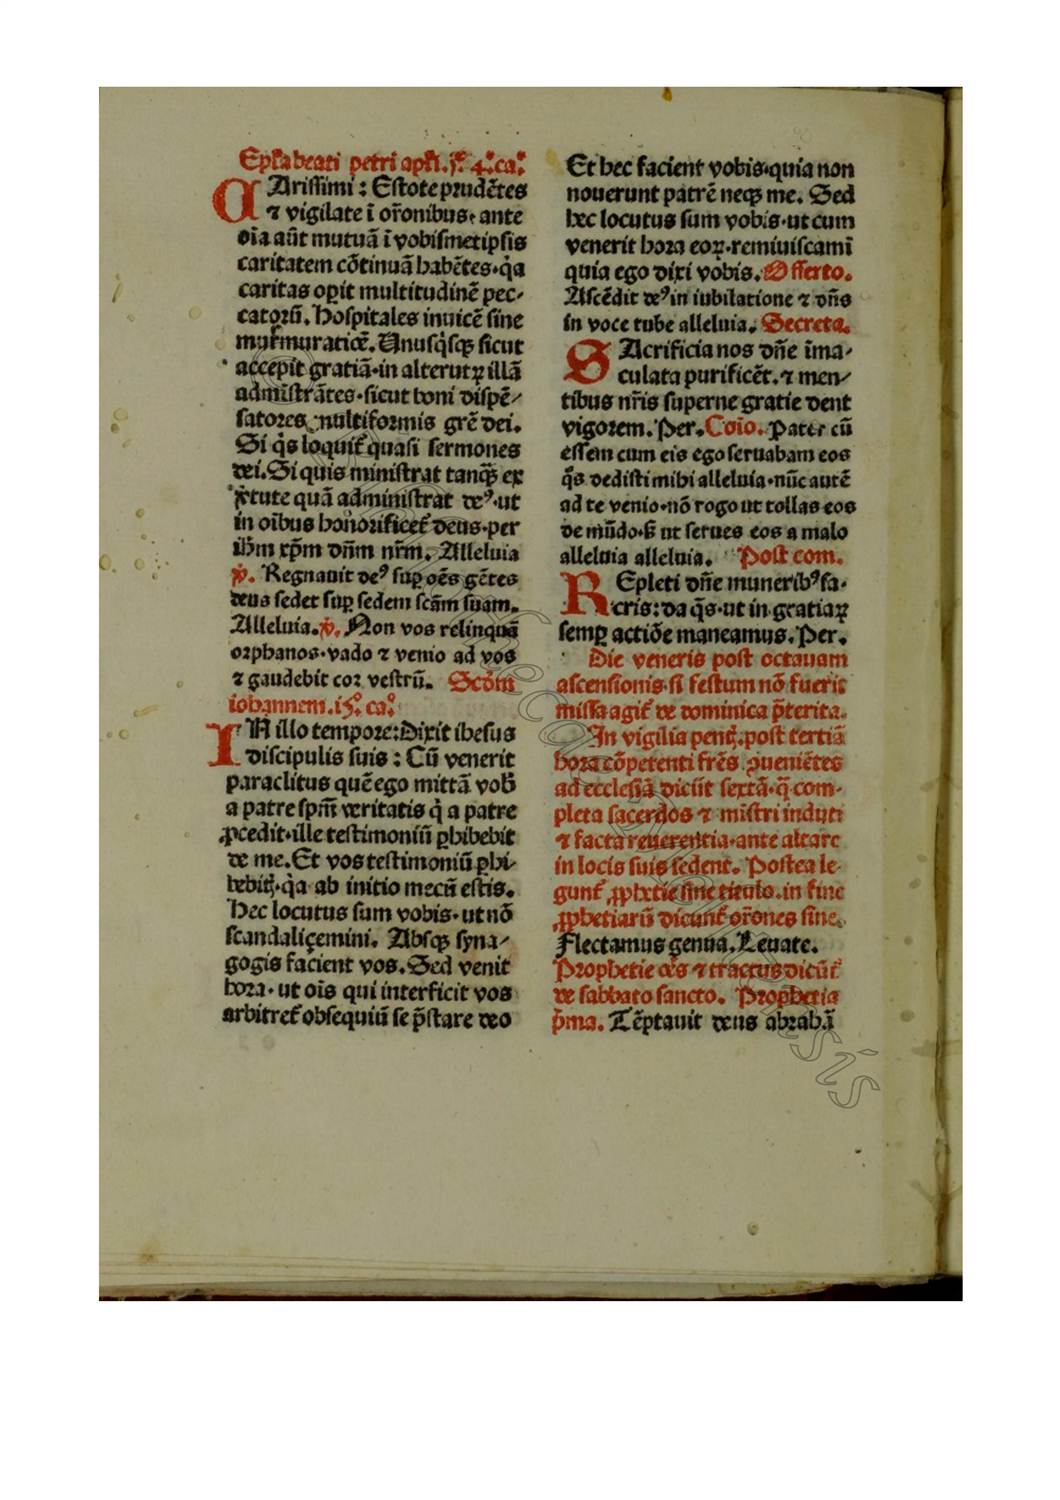 Epl̃a beati petri apl̃i. j.º 4.º ca.º
CArissimi : Estote prudẽtes
⁊ vigilate ĩ or̃onibus. ante
oĩa aũt mutuã ĩ vobismetipsis
caritatem cõtinuã habẽtes·q̃a
caritas oꝑit multitudinẽ pec-
catorũ. Hospitales inuicẽ sine
mur̃muraticẽ. Unusq̃sqꝫ sicut
accepit gratiã·in alterutꝝ illã
admĩstrãtes·sicut boni dispẽ-
satores multiformis gr̃e dei.
Si q̃s loquit̃ quasi sermones
dei. Si quis ministrat tanqꝫ̃ ex
ṽtute quã administrat deꝰ·ut
in oĩbus honorificet̃ deus·per
ih̃m xp̃m dñm nr̃m. Alleluia
℣. Regnauit deꝰ suꝑ oẽs gẽtes
deus sedet suꝑ sedem scãm suam.
Alleluia. ℣. Non vos relinquã
orphanos·vado ⁊ venio ad vos
⁊ gaudebit cor vestrũ. Scd̃m
iohannem. i5.º ca.º
IN illo tempore: Dixit ihesus
discipulis suis : Cũ venerit
paraclitus quẽ ego mittã vob̃
a patre spm̃ veritatis q̃ a patre
ꝓcedit·ille testimoniũ ꝑhibebit
de me. Et vos testimoniũ ꝑhi-
bebitꝭ·q̃a ab initio mecũ estis.
Hec locutus sum vobis·ut nõ
scandaliçemini. Absqꝫ syna-
gogis facient vos. Sed venit
hora·ut oĩs qui interficit vos
arbitret̃ obsequiũ se p̃stare deo
Et hec facient vobis·quia non
nouerunt patrẽ neqꝫ me. Sed
hec locutus sum vobis·ut cum
venerit hora eoꝝ·reminiscamĩ
quia ego dixi vobis. Offerto.
Ascẽdit deꝰ in iubilatione ⁊ dñs
in voce tube alleluia. Secreta.
SAcrificia nos dñe ĩma-
culata purificẽt. ⁊ men-
tibus nr̃is superne gratie dent
vigorem. Per. Coĩo. Pater cũ
essem cum eis ego seruabam eos
q̃s dedisti mihi alleluia·nũc autẽ
ad te venio·nõ rogo ut tollas eos
de mũdo·ß ut serues eos a malo
alleluia alleluia. Post com.
REpleti dñe muneribꝰ sa-
cris: da q̃s·ut in gratiaꝝ
semꝑ actiõe maneamus. Per.
Die veneris post octauam
ascensionis·si festum nõ fuerit
missa agit̃ de dominica p̃terita.
In vigilia pentꝭ. post tertiã
hora cõpetenti fr̃es ꝯueniẽtes
ad ecclesiã dicũt sextã·q̃ com-
pleta sacerdos ⁊ mĩstri induti
⁊ facta reuerentia·ante altare
in locis suis sedent. Postea le-
gunt̃ ꝓphetie sine titulo. in fine
ꝓphetiarũ dicunt̃ or̃ones sine.
Flectamus genua. Leuate.
Prophetie oẽs ⁊ tractus dicũt̃
de sabbato sancto. Prophetia
p̃ma. Tẽptauit deus abrahã